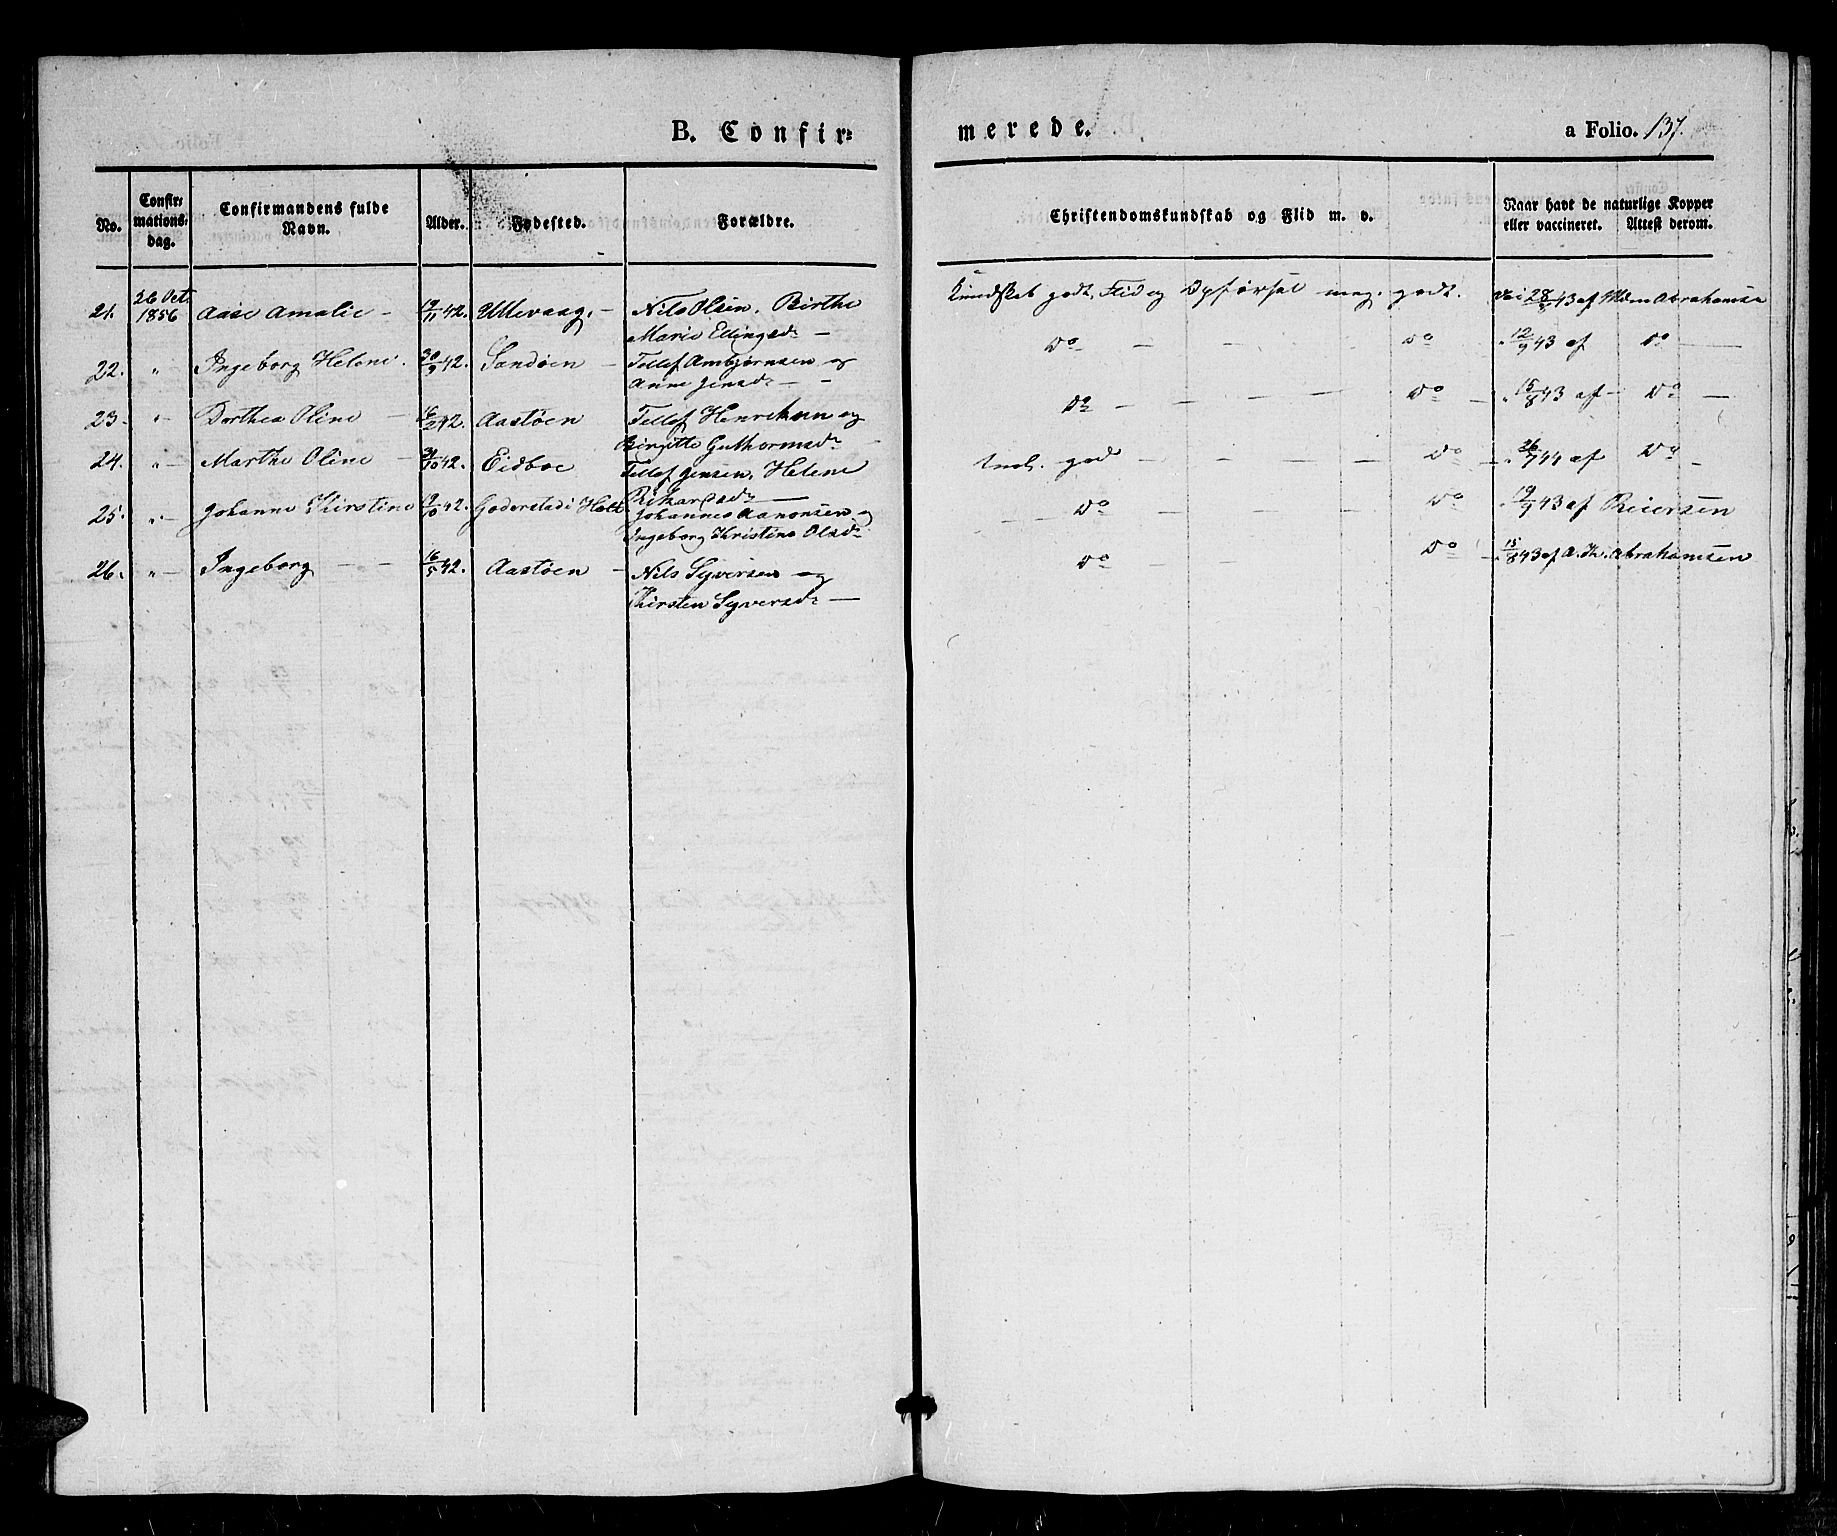 B. Confir=
merede.
a Folio. 137.
No.
Confir=
mations=
dag.
Confirmandens fulde
Navn.
Alder.
Fødested.
Forældre.
Christendomskundskab og Flid m. v.
Naar havt de naturlige Kopper
eller vaccineret. Attest derom.
21. 26 Oct. 1856 Aase Amalie – 19/11 42. Ullevaag. – Nils Olsen. Birthe
Marie Ellingsdr –
Kundskab godt, Flid og Opførsel meg. godt. 28/8 43 af Abrahamsen
22. " Ingeborg Helene. 30/9 42. Sandøen – Tellef Ambjørnsen og
Anne Jensdr – –
Do – – – – Do " 12/9 43 af Do –
23. " – Dorthea Oline – 16/2 42. Aastøen Tellef Henriksen og
Birgitte Guthormsdr –
Do – – – – Do – " 15/8 43 af – Do –
24. " – Marthe Oline – 31/10 42. Eidboe Tellef Jensen, Helene
Rikardsdr –
godt – – – – Do – " 26/7 44 af Do –
25. " – Johanne Kirstine 19/10 42. Goderstad i Holt Johannes Aanonsen og
Ingeborg Kristine Olsdr
– – Do – – – – Do " 19/9 43 af Reiersen
26. " – Ingeborg – – 16/5 42. Aastøen – Nils Syversen og
Kirsten Syversdr –
Do – – Do – " 15/8 43 af A. Th. Abrahamsen